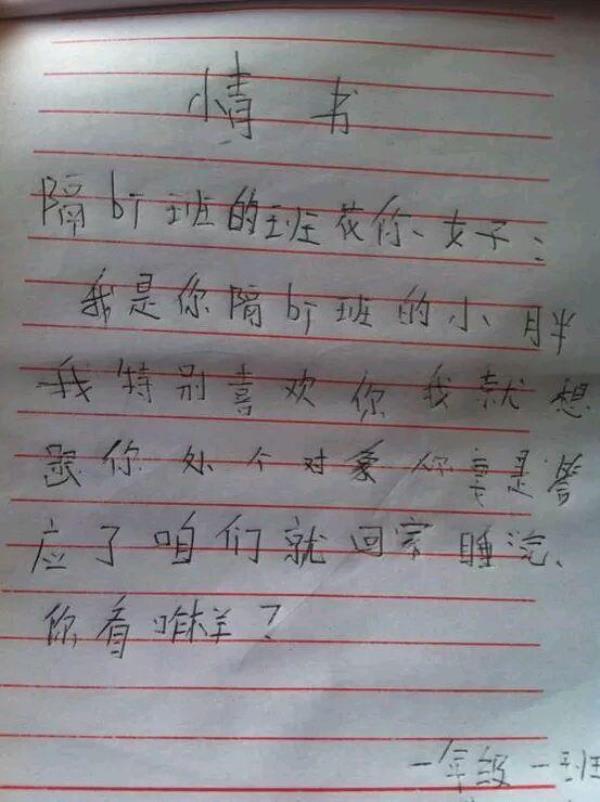 情书
隔bì班的班花你、女子：
我是你隔bì班的小胖
我特别喜欢你我就想
跟你处个对象你要是答
应了咱们就回家睡
你看咋样？
一年级一班